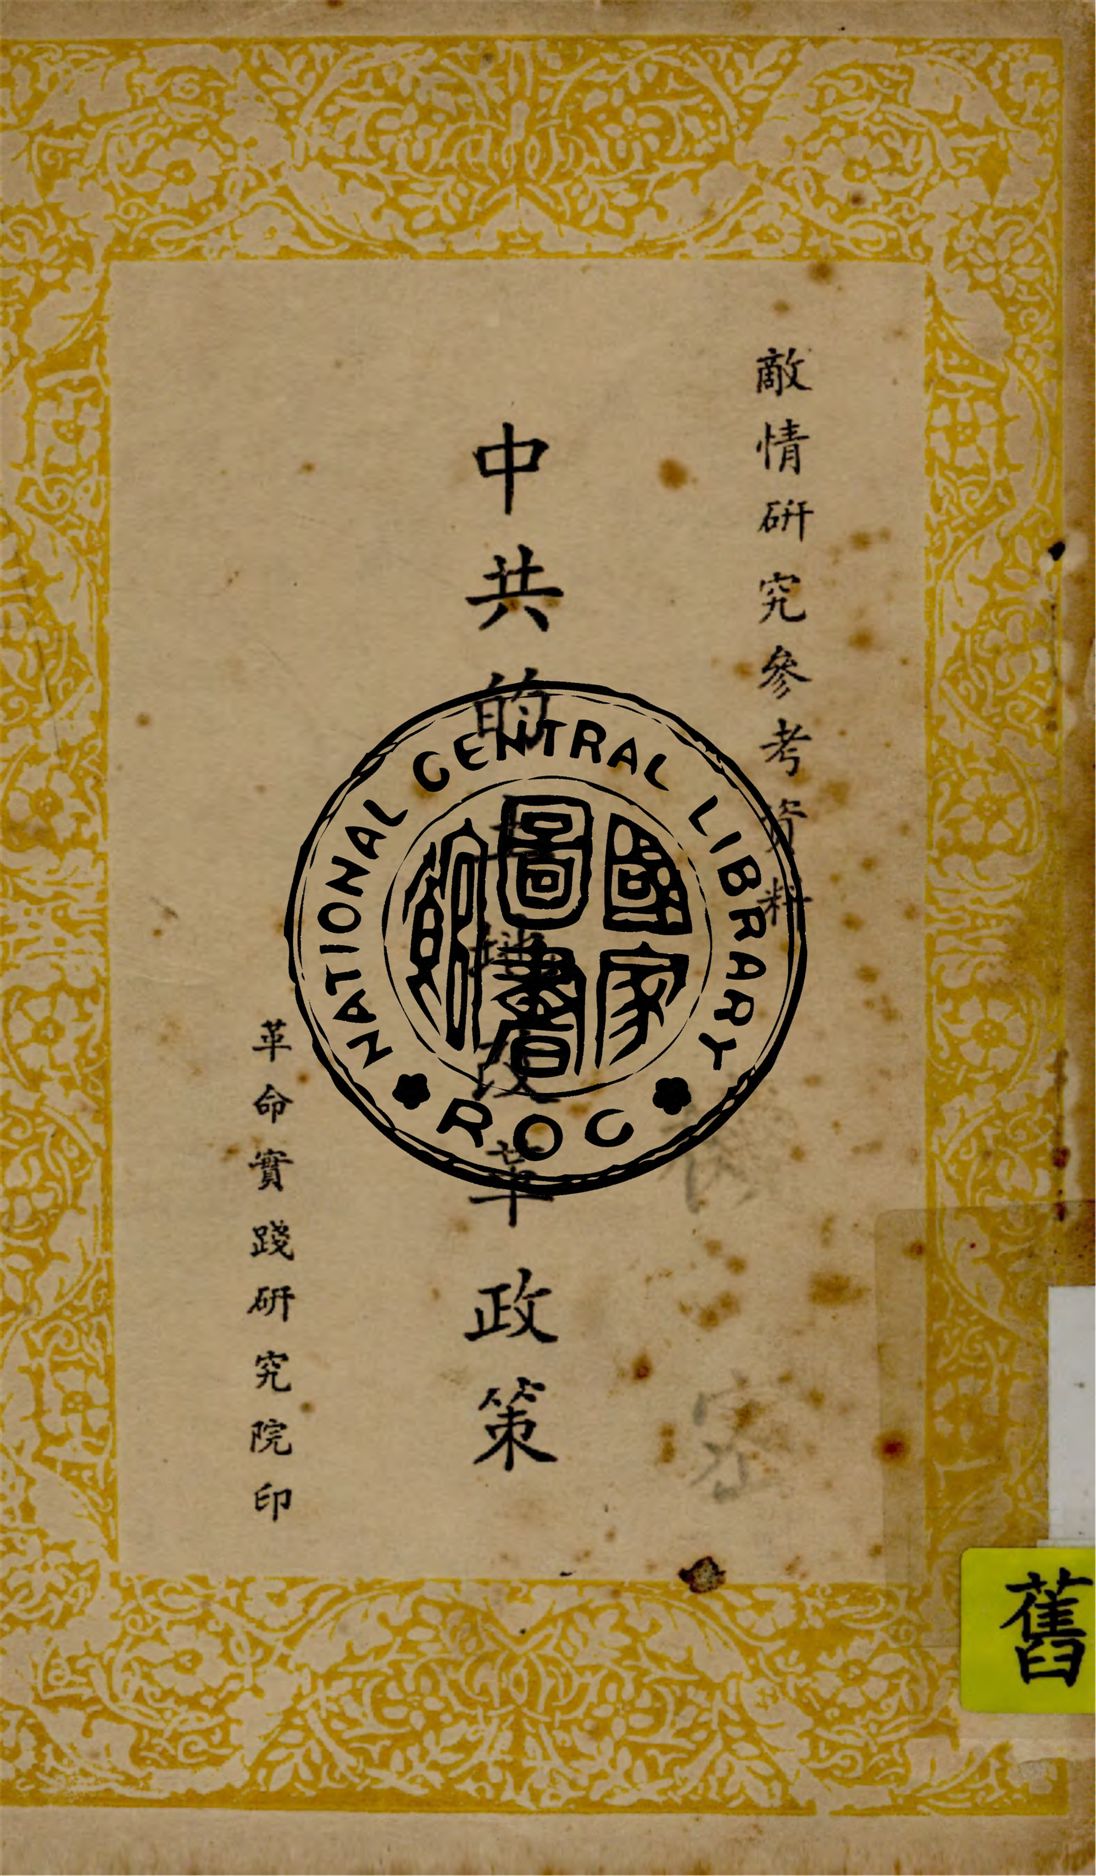 敵情研究參考資料
中共的土地改革政策
革命實踐研究院印
NATIONAL CENTRAL LIBRARY
ROC
國家
圖書
館
密
舊